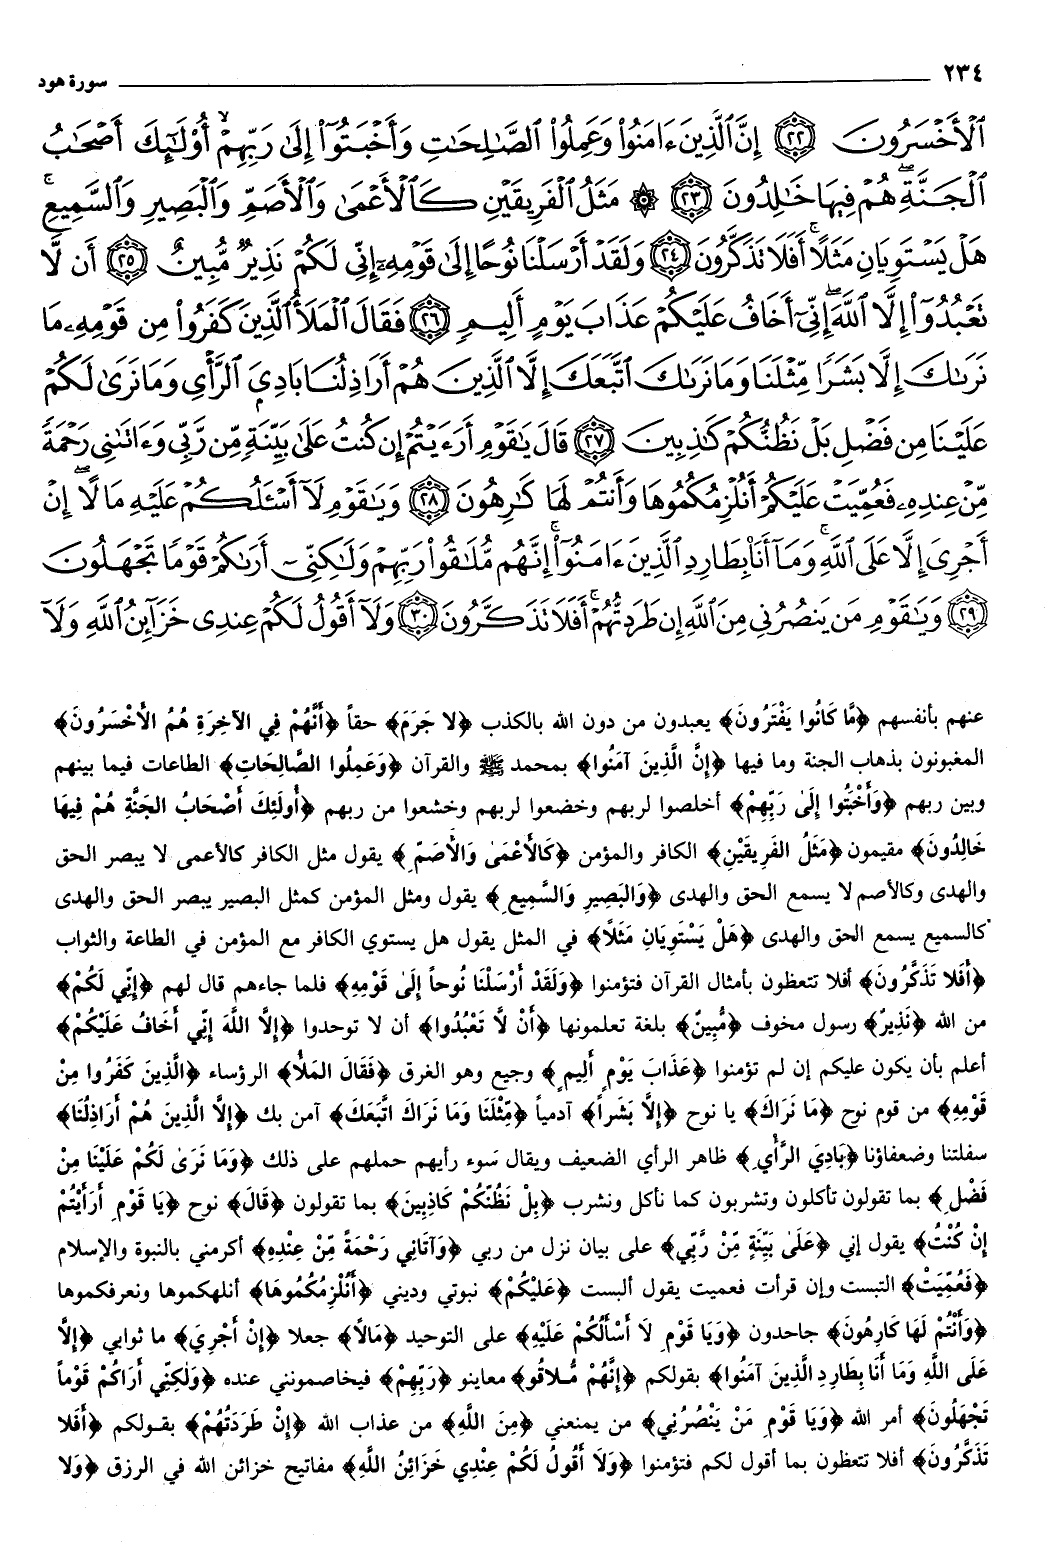 ٢٣٤ سورة هود
ٱلْأَخْسَرُونَ ۝٢٢ إِنَّ ٱلَّذِينَ ءَامَنُوا۟ وَعَمِلُوا۟ ٱلصَّـٰلِحَـٰتِ وَأَخْبَتُوٓا۟ إِلَىٰ رَبِّهِمْ أُو۟لَـٰٓئِكَ أَصْحَـٰبُ
ٱلْجَنَّةِ ۖ هُمْ فِيهَا خَـٰلِدُونَ ۝٢٣ ۞ مَثَلُ ٱلْفَرِيقَيْنِ كَٱلْأَعْمَىٰ وَٱلْأَصَمِّ وَٱلْبَصِيرِ وَٱلسَّمِيعِ ۚ
هَلْ يَسْتَوِيَانِ مَثَلًا ۚ أَفَلَا تَذَكَّرُونَ ۝٢٤ وَلَقَدْ أَرْسَلْنَا نُوحًا إِلَىٰ قَوْمِهِۦٓ إِنِّى لَكُمْ نَذِيرٌ مُّبِينٌ ۝٢٥ أَن لَّا
تَعْبُدُوٓا۟ إِلَّا ٱللَّهَ ۖ إِنِّىٓ أَخَافُ عَلَيْكُمْ عَذَابَ يَوْمٍ أَلِيمٍ ۝٢٦ فَقَالَ ٱلْمَلَأُ ٱلَّذِينَ كَفَرُوا۟ مِن قَوْمِهِۦ مَا
نَرَىٰكَ إِلَّا بَشَرًا مِّثْلَنَا وَمَا نَرَىٰكَ ٱتَّبَعَكَ إِلَّا ٱلَّذِينَ هُمْ أَرَاذِلُنَا بَادِىَ ٱلرَّأْىِ وَمَا نَرَىٰ لَكُمْ
عَلَيْنَا مِن فَضْلٍۭ بَلْ نَظُنُّكُمْ كَـٰذِبِينَ ۝٢٧ قَالَ يَـٰقَوْمِ أَرَءَيْتُمْ إِن كُنتُ عَلَىٰ بَيِّنَةٍ مِّن رَّبِّى وَءَاتَىٰنِى رَحْمَةً
مِّنْ عِندِهِۦ فَعُمِّيَتْ عَلَيْكُمْ أَنُلْزِمُكُمُوهَا وَأَنتُمْ لَهَا كَـٰرِهُونَ ۝٢٨ وَيَـٰقَوْمِ لَآ أَسْـَٔلُكُمْ عَلَيْهِ مَالًا ۖ إِنْ
أَجْرِىَ إِلَّا عَلَى ٱللَّهِ ۚ وَمَآ أَنَا۠ بِطَارِدِ ٱلَّذِينَ ءَامَنُوٓا۟ ۚ إِنَّهُم مُّلَـٰقُوا۟ رَبِّهِمْ وَلَـٰكِنِّىٓ أَرَىٰكُمْ قَوْمًا تَجْهَلُونَ
۝٢٩ وَيَـٰقَوْمِ مَن يَنصُرُنِى مِنَ ٱللَّهِ إِن طَرَدتُّهُمْ ۚ أَفَلَا تَذَكَّرُونَ ۝٣٠ وَلَآ أَقُولُ لَكُمْ عِندِى خَزَآئِنُ ٱللَّهِ وَلَآ
عنهم بأنفسهم ﴿مَّا كَانُوا يَفْتَرُونَ﴾ يعبدون من دون الله بالكذب ﴿لا جَرَمَ﴾ حقاً ﴿أَنَّهُمْ فِي الآخِرَةِ هُمُ الأَخْسَرُونَ﴾
المغبونون بذهاب الجنة وما فيها ﴿إِنَّ الَّذِينَ آمَنُوا﴾ بمحمد ﷺ والقرآن ﴿وَعَمِلُوا الصَّالِحَاتِ﴾ الطاعات فيما بينهم
وبين ربهم ﴿وَأَخْبَتُوا إِلَىٰ رَبِّهِمْ﴾ أخلصوا لربهم وخضعوا لربهم وخشعوا من ربهم ﴿أُولَئِكَ أَصْحَابُ الجَنَّةِ هُمْ فِيهَا
خَالِدُونَ﴾ مقيمون ﴿مَثَلُ الفَرِيقَيْنِ﴾ الكافر والمؤمن ﴿كَالأَعْمَىٰ وَالأَصَمِّ﴾ يقول مثل الكافر كالأعمى لا يبصر الحق
والهدى وكالأصم لا يسمع الحق والهدى ﴿وَالبَصِيرِ وَالسَّمِيعِ﴾ يقول ومثل المؤمن كمثل البصير يبصر الحق والهدى
كالسميع يسمع الحق والهدى ﴿هَلْ يَسْتَوِيَانِ مَثَلًا﴾ في المثل يقول هل يستوي الكافر مع المؤمن في الطاعة والثواب
﴿أَفَلا تَذَكَّرُونَ﴾ أفلا تتعظون بأمثال القرآن فتؤمنوا ﴿وَلَقَدْ أَرْسَلْنَا نُوحاً إِلَىٰ قَوْمِهِ﴾ فلما جاءهم قال لهم ﴿إِنِّي لَكُمْ﴾
من الله ﴿نَذِيرٌ﴾ رسول مخوف ﴿مُّبِينٌ﴾ بلغة تعلمونها ﴿أَنْ لَّا تَعْبُدُوا﴾ أن لا توحدوا ﴿إِلَّا اللَّهَ إِنِّي أَخَافُ عَلَيْكُمْ﴾
أعلم بأن يكون عليكم إن لم تؤمنوا ﴿عَذَابَ يَوْمٍ أَلِيمٍ﴾ وجيع وهو الغرق ﴿فَقَالَ المَلأُ﴾ الرؤساء ﴿الَّذِينَ كَفَرُوا مِنْ
قَوْمِهِ﴾ من قوم نوح ﴿مَا نَرَاكَ﴾ يا نوح ﴿إِلَّا بَشَراً﴾ آدمياً ﴿مِّثْلَنَا وَمَا نَرَاكَ اتَّبَعَكَ﴾ آمن بك ﴿إِلَّا الَّذِينَ هُمْ أَرَاذِلُنَا﴾
سفلتنا وضعفاؤنا ﴿بَادِيَ الرَّأْيِ﴾ ظاهر الرأي الضعيف ويقال سَوء رأيهم حملهم على ذلك ﴿وَمَا نَرَىٰ لَكُمْ عَلَيْنَا مِنْ
فَضْلٍ﴾ بما تقولون تأكلون وتشربون كما نأكل ونشرب ﴿بِلْ نَظُنُّكُمْ كَاذِبِينَ﴾ بما تقولون ﴿قَالَ﴾ نوح ﴿يَا قَوْمِ أَرَأَيْتُمْ
إِنْ كُنْتُ﴾ يقول إني ﴿عَلَىٰ بَيِّنَةٍ مِّنْ رَّبِّي﴾ على بيان نزل من ربي ﴿وَآتَانِي رَحْمَةً مِّنْ عِنْدِهِ﴾ أكرمني بالنبوة والإسلام
﴿فَعُمِّيَتْ﴾ التبست وإن قرأت فعميت يقول ألبست ﴿عَلَيْكُمْ﴾ نبوتي وديني ﴿أَنُلْزِمُكُمُوهَا﴾ أنلهكموها ونعرفكموها
﴿وَأَنْتُمْ لَهَا كَارِهُونَ﴾ جاحدون ﴿وَيَا قَوْمِ لَا أَسْأَلُكُمْ عَلَيْهِ﴾ على التوحيد ﴿مَالًا﴾ جعلا ﴿إِنْ أَجْرِيَ﴾ ما ثوابي ﴿إِلَّا
عَلَى اللَّهِ وَمَا أَنَا بِطَارِدِ الَّذِينَ آمَنُوا﴾ بقولكم ﴿إِنَّهُمْ مُّلَاقُو﴾ معاينو ﴿رَبِّهِمْ﴾ فيخاصمونني عنده ﴿وَلَكِنِّي أَرَاكُمْ قَوْماً
تَجْهَلُونَ﴾ أمر الله ﴿وَيَا قَوْمِ مَنْ يَنْصُرُنِي﴾ من يمنعني ﴿مِنَ اللَّهِ﴾ من عذاب الله ﴿إِنْ طَرَدتُهُمْ﴾ بقولكم ﴿أَفَلا
تَذَكَّرُونَ﴾ أفلا تتعظون بما أقول لكم فتؤمنوا ﴿وَلَا أَقُولُ لَكُمْ عِنْدِي خَزَائِنُ اللَّهِ﴾ مفاتيح خزائن الله في الرزق ﴿وَلا